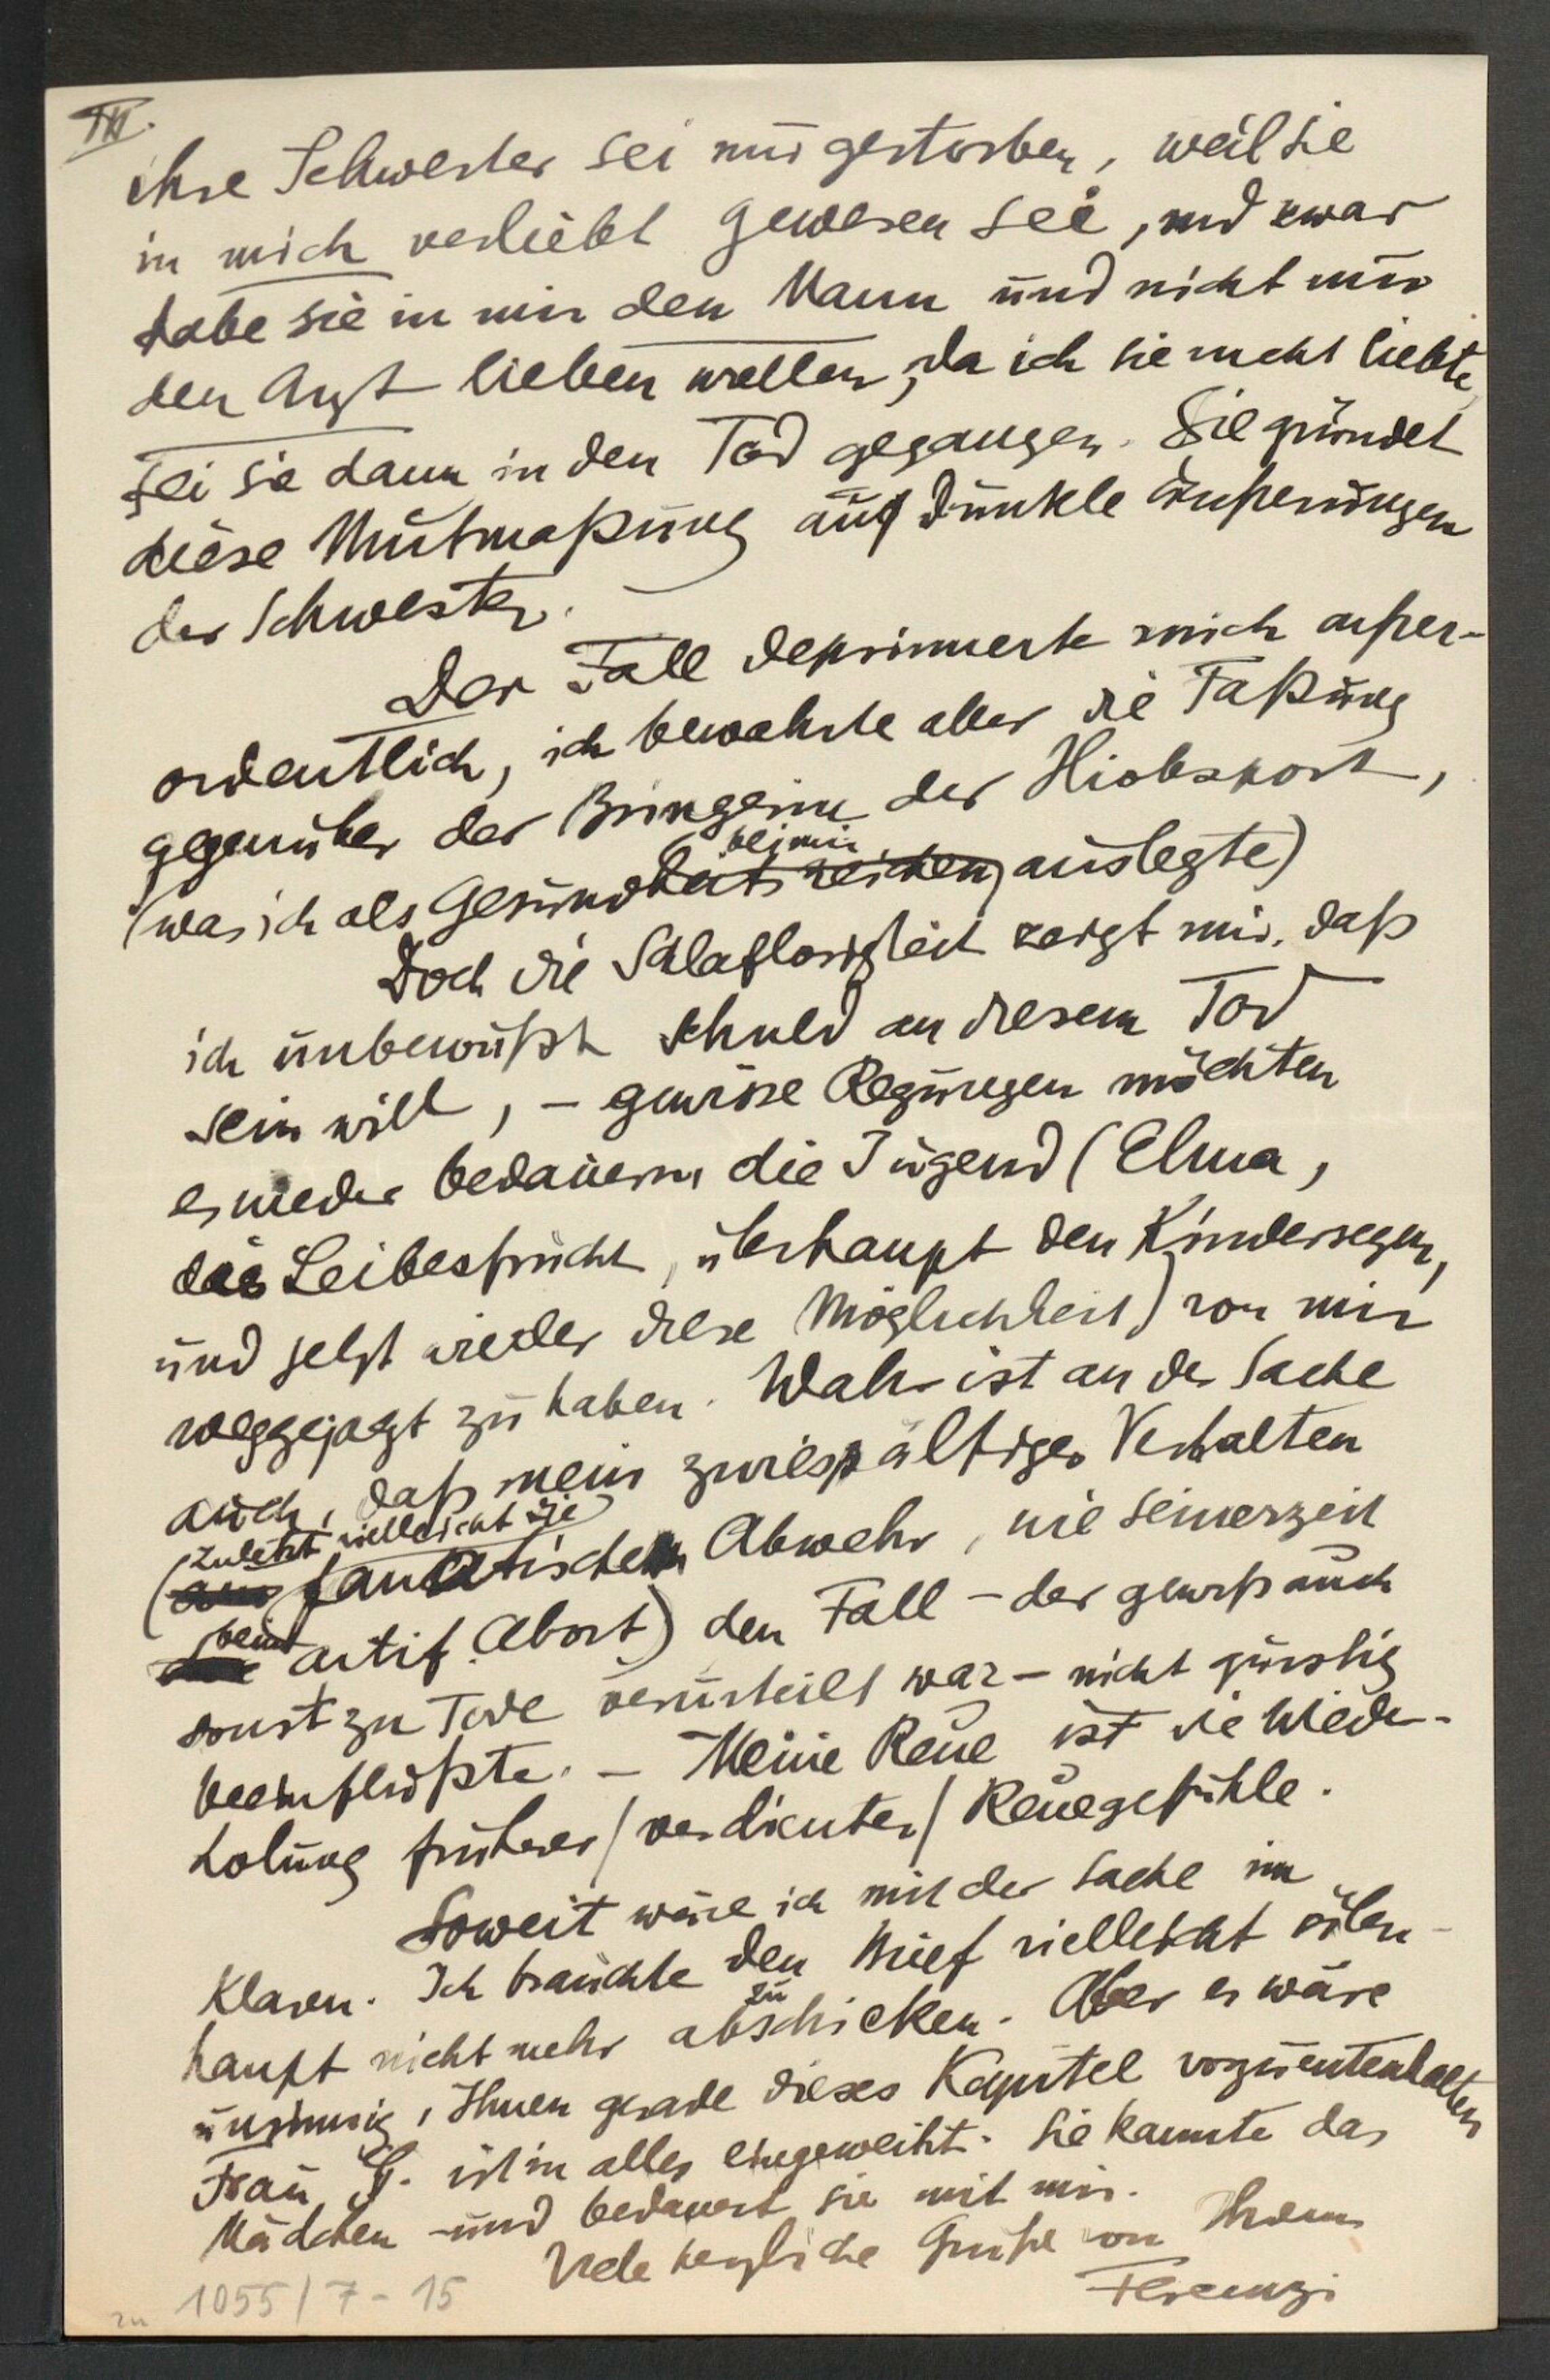 III.
ihre Schwester sei nur gestorben, weil sie
in mich verliebt gewesen sei, und zwar
habe sie in mir den Mann und nicht nur
den Arzt lieben wollen, da ich sie nicht liebte,
sei sie dann in den Tod gegangen. Sie gründet
diese Mutmaßung auf dunkle Äußerungen
der Schwester.
Der Fall deprimierte mich außer-
ordentlich, ich bewahrte aber die Faßung
gegenüber der Bringerin der Hiobspost,
bei mir
(was ich als Gesundheitszeichen auslegte)
Doch die Schlaflosigkeit zeigt mir, daß
ich unbewußt schuld an diesem Tod
sein will, – gewisse Regungen möchten
es wieder bedauern, die Jugend (Elma,
die Leibesfrucht, überhaupt den Kindersegen,
und jetzt wieder diese Möglichkeit) von mir
weggejagt zu haben. Wahr ist an der Sache
auch, daß mein zwiespältiges Verhalten
zuletzt vielleicht die
(aus fanatischen Abwehr, wie seinerzeit
beim
artif. Abort) den Fall – der gewiß auch
sonst zu Tode verurteilt war – nicht günstig
beeinflußte. – Meine Reue ist die Wieder-
holung früherer / verdienter / Reuegefühle.
Soweit wäre ich mit der Sache im
Klaren. Ich brauchte den Brief vielleicht über-
zu
haupt nicht mehr abschicken. Aber es wäre
unsinnig, Ihnen gerade dieses Kapitel vorzuentenhalten
Frau G. ist in alles eingeweiht. Sie kannte das
Mädchen – und bedauert sie mit mir.
Viele herzliche Grüße von Ihrem
Ferenczi
zu 1055/7-15